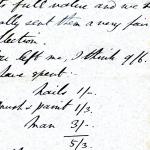 to full value and we
sent them a very fair
llection.
left me, I think 9/6.
have spent.
nails 1/-.
brush & paint 1/3.
man 3/-.
5/3.